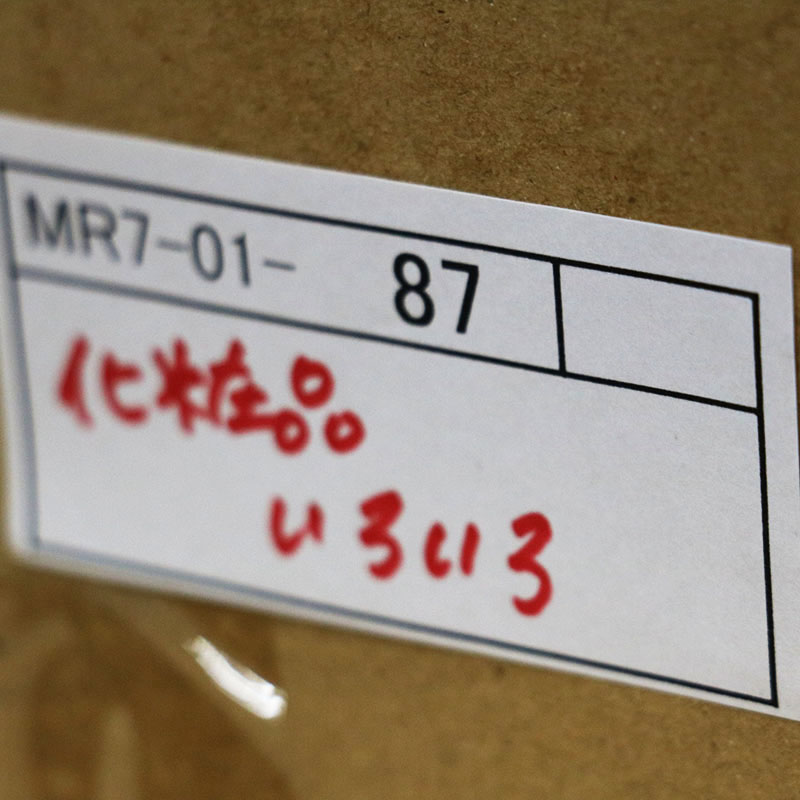 MR7-01- 87
化粧品
いろいろ